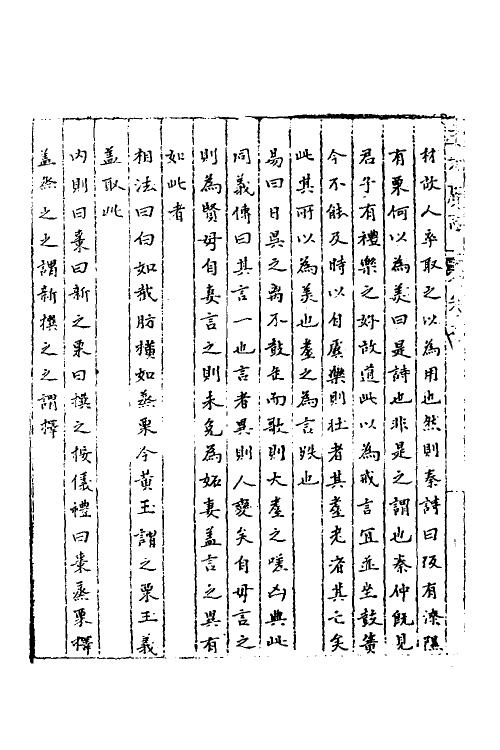 材故人卒取之以為用也然則秦詩曰阪有漆隰
有栗何以為美曰是詩也非是之謂也秦仲既見
君子有禮樂之好故道此以為戒言冝並坐鼓簧
今不能及時以自虞樂則壮者其耋老者其亡矣
此其所以為美也耋之為言跌也
易曰日昃之离不鼓缶而歌則大耋之嗟凶與此
同義傳曰其言一也言者異則人變矣自毋言之
則為賢毋自妻言之則未免為妬妻盖言之異有
如此者
相法曰白如截肪横如蒸栗今黄玉謂之栗玉義
盖取此
内則曰棗曰新之栗曰撰之按儀禮曰棗蒸栗擇
盖蒸之之謂新撰之之謂擇